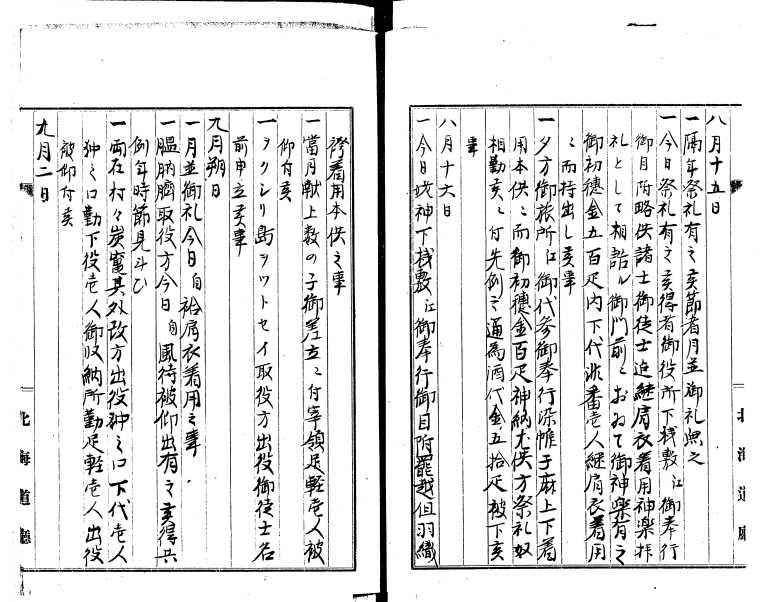 八月十五日
一隔年祭礼有之亥節者月並御礼無之
一今日祭礼有之亥得者御役所下桟敷江御奉行
御目附略供諸士御徒士迄継肩衣着用神楽拝
礼として相詰ル御門前ニおゐて御神楽有之
御初穂金五百疋内下代当番壱人継肩衣着用
ニ而持出し亥事
一夕方御旅所江御代参御奉行染帷子麻上下着
用本供ニ而御初穂金百疋神納尤供方祭礼奴
相勤亥ニ付先例之通為酒代金五拾疋被下亥
事
八月十六日
一今日姥神下桟敷江御奉行御目附罷越但羽織
袴着用本供之事
一當月献上数の子御差立ニ付宰領足軽壱人被
仰付亥
一ヲクシリ島ヲツトセイ取役方出役御徒士名
前申立亥事
九月朔日
一月並御礼今日自袷肩衣着用之事
一膃肭臍取役方今日自風待被仰出有之亥得共
例年時節見斗ひ
一両在村々炭竃其外改方出役沖之口下代壱人
沖之口勤下役壱人御収納所勤足軽壱人出役
被仰付亥
九月二日
北海道廳
北海道廳